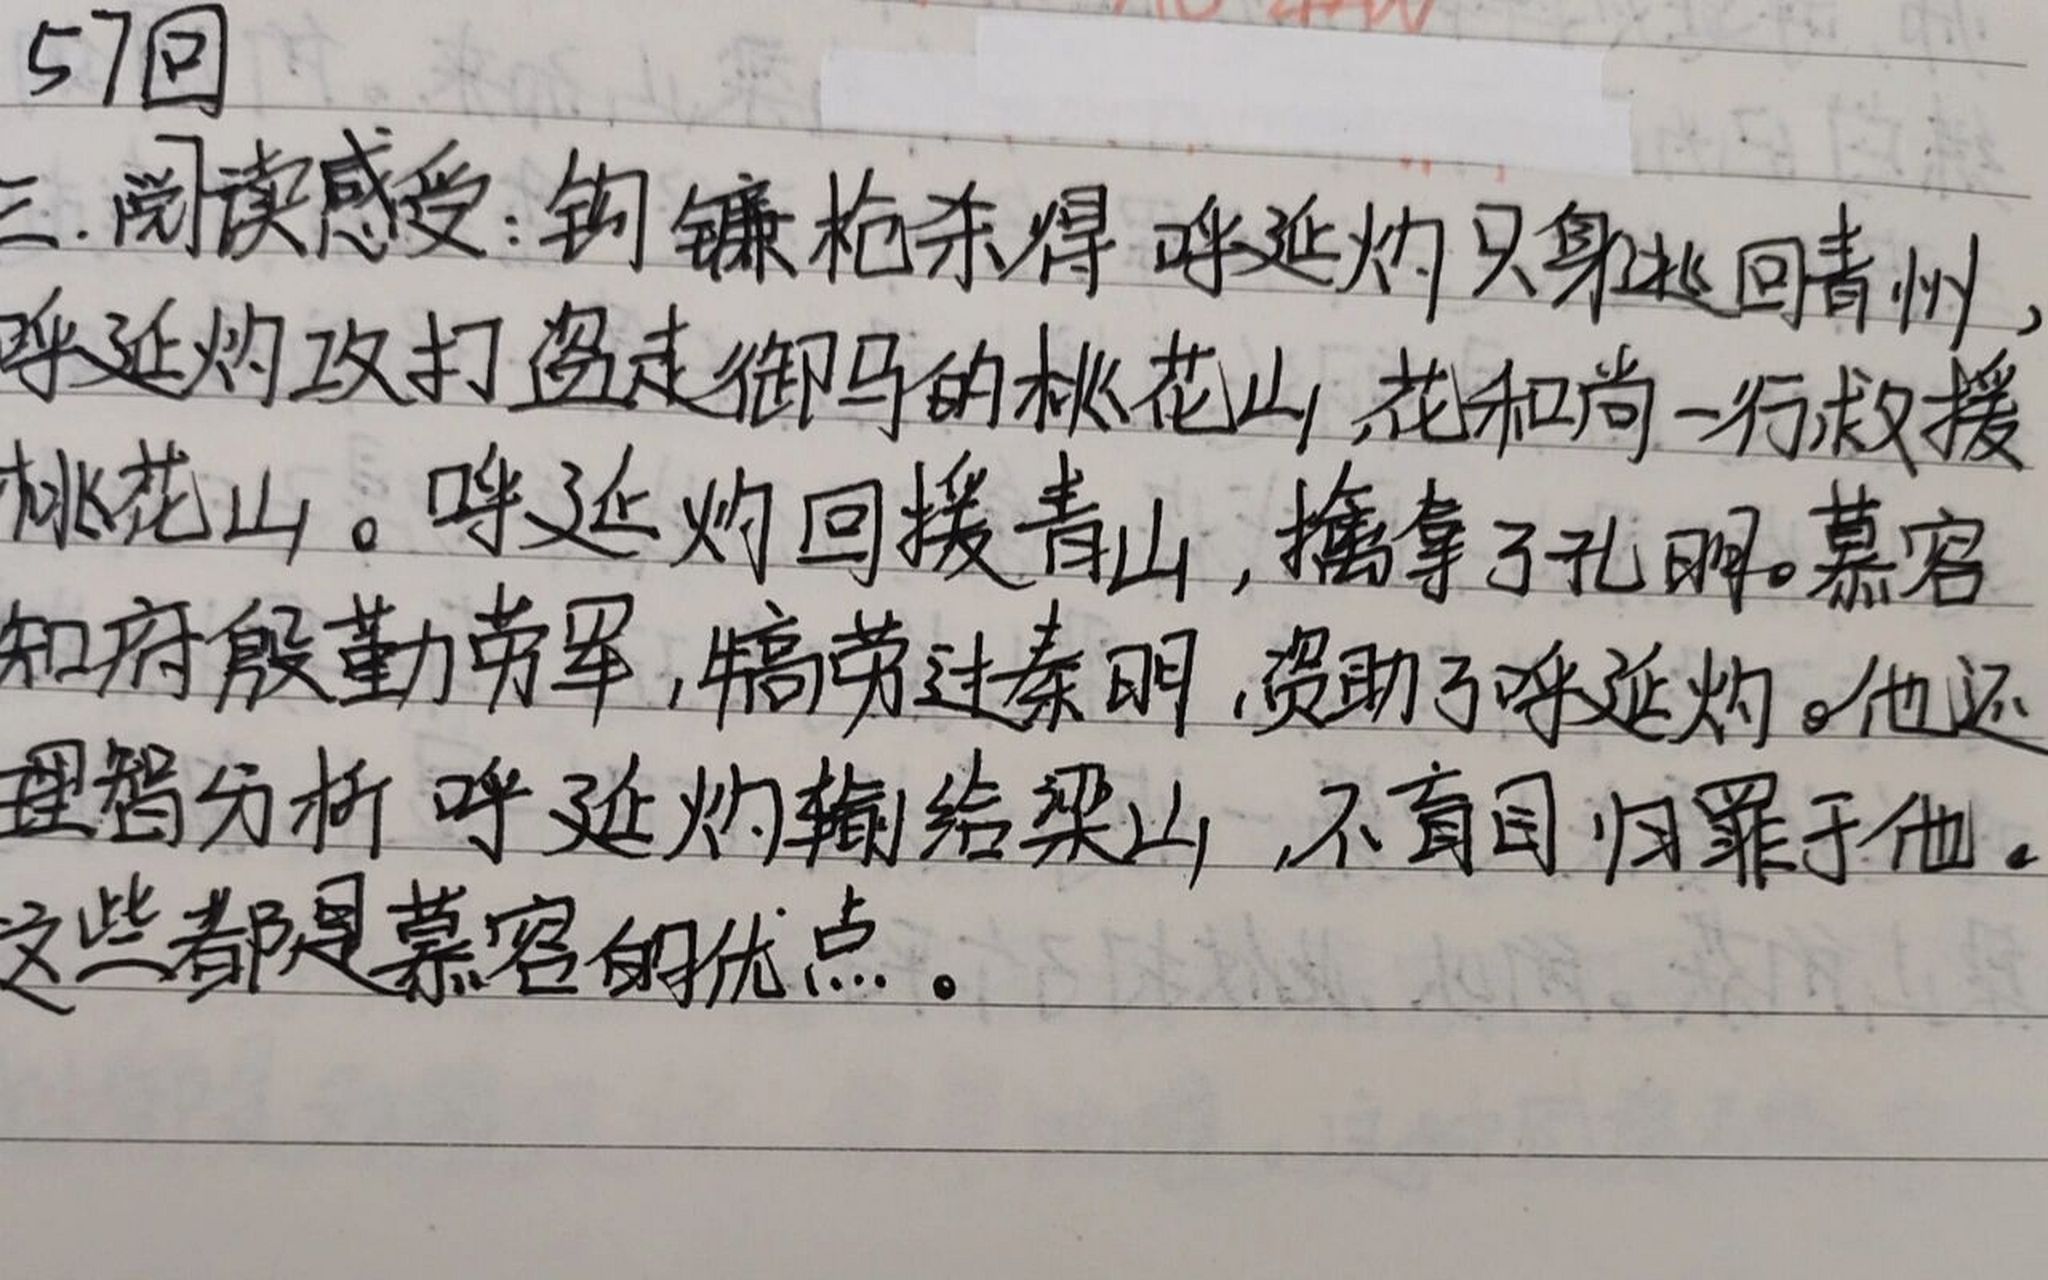 57回
三.阅读感受:钩镰枪杀得呼延灼只身逃回青州,
呼延灼攻打盗走御马的桃花山,花和尚一行救援
桃花山。呼延灼回援青山,擒拿了孔明。慕容
知府殷勤劳军,犒劳过秦明,资助了呼延灼。他还
理智分析呼延灼输给梁山,不盲目归罪于他。
这些都是慕容的优点。